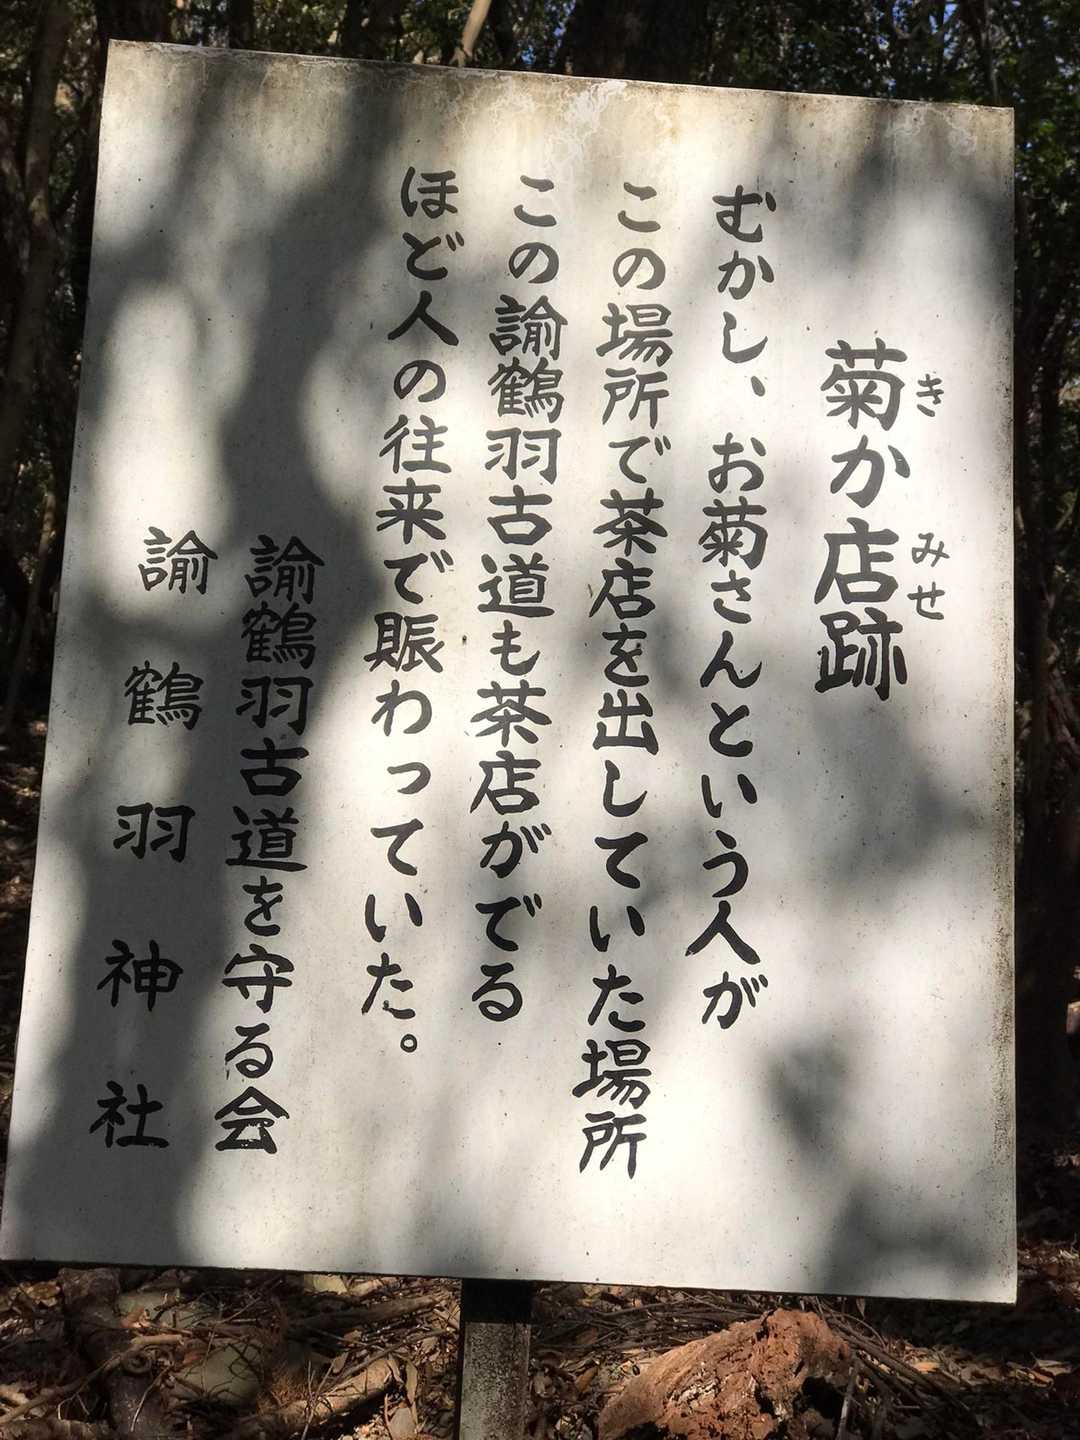 菊か店跡
き
みせ
むかし、お菊さんという人が
この場所で茶店を出していた場所
この諭鶴羽古道も茶店がでる
ほど人の往来で賑わっていた。
諭鶴羽古道を守る会
諭鶴羽神社